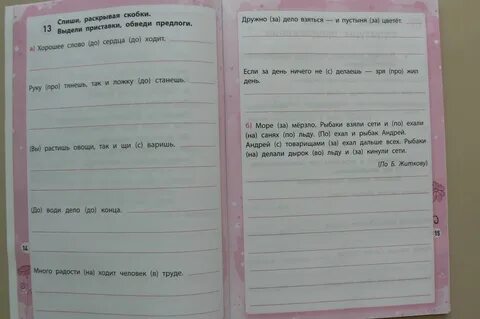 13 Спиши, раскрывая скобки.
Выдели приставки, обведи предлоги.
а) Хорошее слово (до) сердца (до) ходит.
Руку (про) тянешь, так и ложку (до) станешь.
(Вы) растишь овощи, так и щи (с) варишь.
(До) води дело (до) конца.
Много радости (на) ходит человек (в) труде.
14
Дружно (за) дело взяться — и пустыня (за) цветёт.
Если за день ничего не (с) делаешь — зря (про) жил
день.
б) Море (за) мёрзло. Рыбаки взяли сети и (по) ехали
(на) санях (по) льду. (По) ехал и рыбак Андрей.
Андрей (с) товарищами (за) ехал дальше всех. Рыбаки
(на) делали дырок (во) льду и (за) кинули сети.
(По Б. Житкову)
15